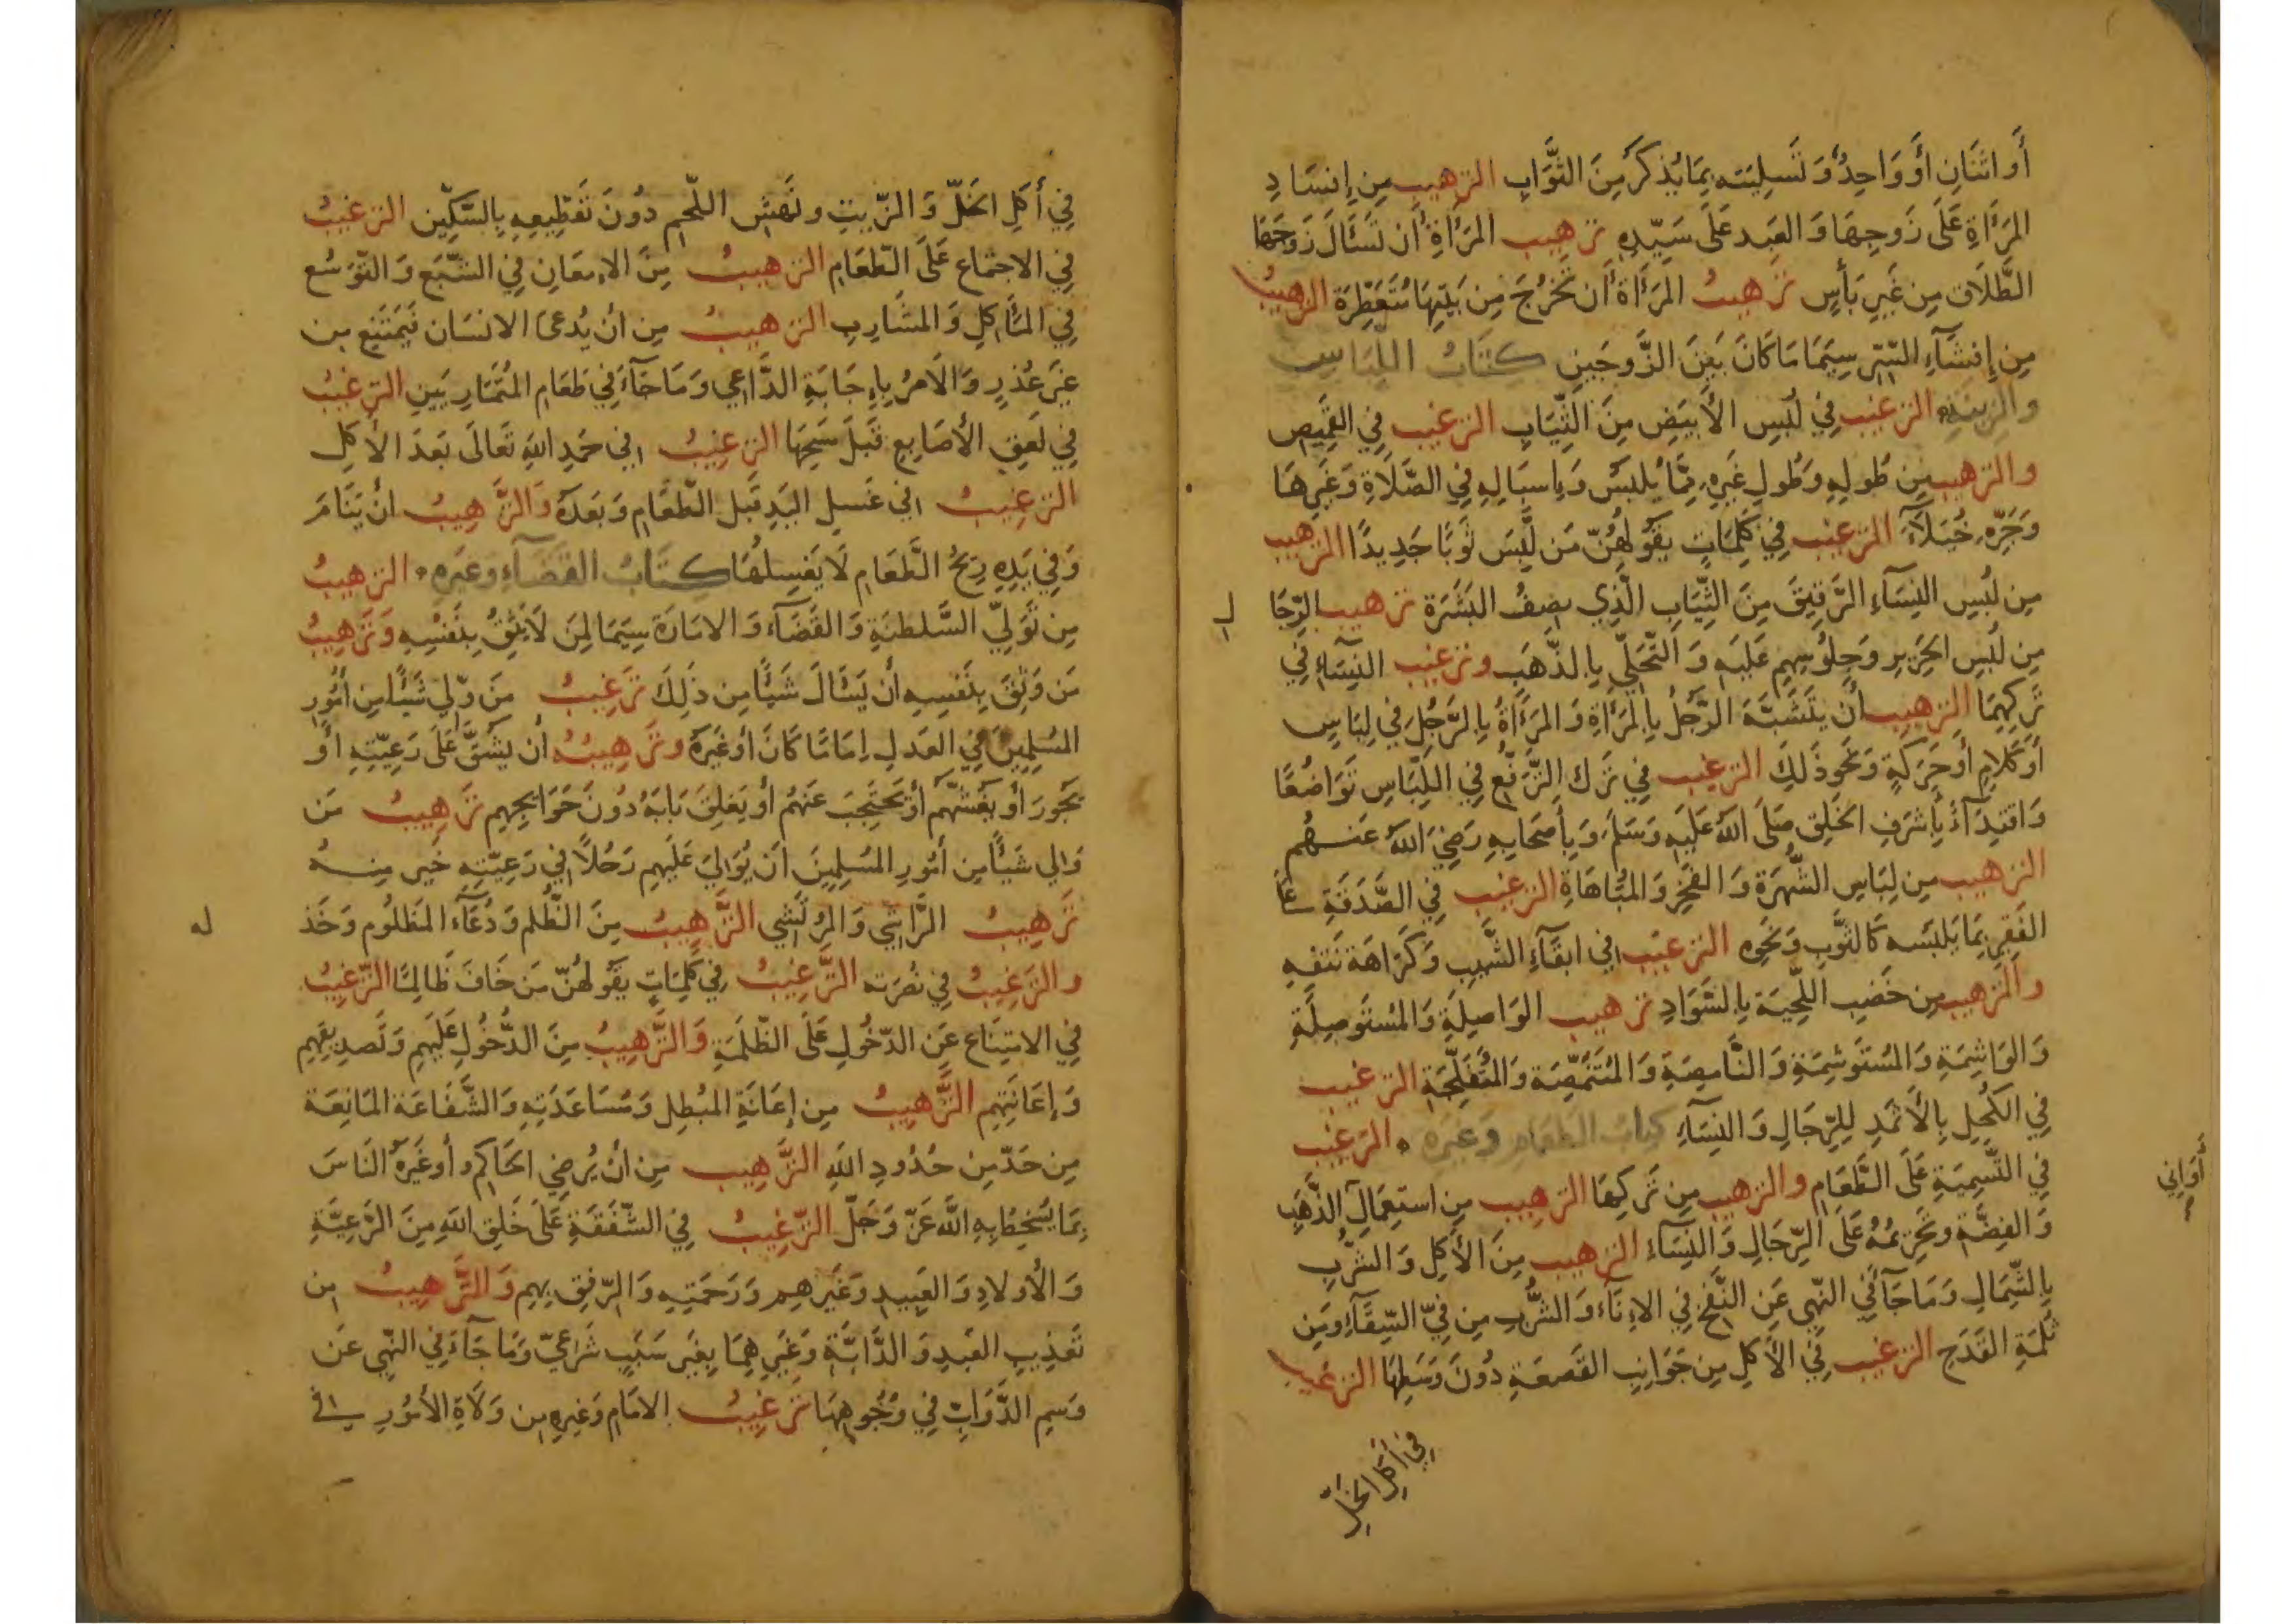 أَو اثنَانِ أَوْ وَاحِدٌ وَتَسلِيَتِه بِمَا يُذكَرُ مِنَ الثَّوَابِ الترهيب مِن إِفسَادِ
المَرأَةِ عَلَى زَوجِهَا وَالعَبد عَلَى سَيّدِهِ ترهيب المَرأَةِ أَن تَسأَلَ زَوجَهَا
الطَّلَاق مِن غَيرِ بَأسٍ ترهيبُ المَرأَة أَن تَخرُجَ مِن بَيتِهَا مُتَعَطِّرَة الترهيبُ
مِن إِفشَآءِ السّرّ سِيَمَا مَا كَانَ بَينَ الزَّوجَين كِتَابُ اللِّبَاسِ
والزينَةِ الترغيب فِي لُبسِ الأَبيَضِ مِنَ الثِّيَابِ الترغيب فِي القَمِيصِ
والترهيب مِن طُولِهِ وَطُولِ غَيرِهِ مِمَّا يُلبَسُ وَإِسبَالِهِ فِي الصَّلَاةِ وَغَيرِهَا
وَجَرِّهِ خُيَلَآءَ الترغيب فِي كَلِمَاتٍ يَقُولُهُنّ مَن لَبِسَ ثَوبًا جَدِيدًا الترهيب
مِن لُبسِ النِسَآءِ الرَّقِيقَ مِنَ الثِّيَابِ الَّذِي يصِفُ البَشَرَة ترهيب الرّجَا
ل
مِن لُبسِ الحَرِير وَجلُوسِهِم عَلَيهِ وَالتَّحَلّي بِالذَّهَبِ وترغيب النِسَاءِ فِي
تَركِهِمَا الترهيب أَن يَتَشَبَّهَ الرَّجُلُ بِالمَرأَةِ وَالمَرأَةُ بِالرَّجُلِ فِي لِبَاسٍ
أَو كَلَامٍ أَو حَرَكَةٍ وَنَحو ذَلِكَ الترغيب فِي تَرك التَّرَفّعِ فِي اللِّبَاسِ تَوَاضُعًا
وَاقتِدَآءً بِأَشرَفِ الخَلقِ صَلَّى اللهُ عَلَيهِ وَسَلَّمَ وَبِأَصحَابِهِ رَضِيَ اللهُ عَنهُم
الترهيب مِن لِبَاسِ الشُّهرَة وَالفَخرِ وَالمُبَاهَاةِ الترغيب فِي الصَّدَقَةِ عَلَى
الفَقِيرِ بِمَا يَلبَسُه كَالثَّوبِ وَنَحوِه الترغيب فِي ابقَآءِ الشَّيبِ وَكَرَاهَة نَتفِهِ
والترهيب مِن خَضبِ اللِّحيَة بِالسَّوَادِ ترهيب الوَاصِلَةِ وَالمُستَوصِلَةِ
وَالوَاشِمَةِ وَالمُستَوشِمَةِ وَالنَّامِصَةِ وَالمُتَنَمِّصَة وَالمُتَفَلِّجَةِ الترغيب
فِي الكُحلِ بِالأَثمَدِ لِلرِّجَالِ وَالنِسَآءِ كتاب الطعَامِ وَغيرِه الترغيب
فِي التَّسمِيَةِ عَلَى الطَّعَامِ والترهيب مِن تَركِهَا الترهيب مِن استِعمَالِ الذَّهَبِ
أَوَاني
وَالفِضَّة وتَحرِيمُهُ عَلَى الرِّجَالِ وَالنِسَاءِ الترهيب مِنَ الأَكلِ وَالشُّربِ
بِالشِّمَالِ وَمَا جَآءَ فِي النّهي عَنِ النَّفخ فِي الاِنَآء وَالشُّربِ مِن فِيّ السِّقَآءِ وَمِن
ثُلمَةِ القَدَح الترغيب فِي الأَكلِ مِن جَوَانِبِ القَصعَةِ دُونَ وَسَطِهَا الترغيب
في أكل الخلّ
فِي أَكلِ الخَلّ وَالزّيتِ ونَهشِ اللّحمِ دُونَ تَقطِيعِهِ بِالسّكِّين الترغيبُ
فِي الاجتمَاع عَلَى الطّعَامِ الترهيبُ مِنَ الاِمعَانِ فِي الشّبَع وَالتَّوَسُّع
فِي المَآكِلِ وَالمشَارِبِ الترهيبُ مِن أن يُدعَى الانسَان فَيَمتَنِع مِن
غَيرِ عُذرٍ وَالأمرُ بِإِجَابَةِ الدَّاعِي وَمَا جَآءَ فِي طَعَامِ المُتَمَارِيَينِ الترغيبُ
فِي لَعقِ الأصَابِعِ قَبلَ مَسحِهَا الترغيبُ فِي حَمدِ اللهِ تَعَالَى بَعدَ الأكلِ
الترغيبُ فِي غَسلِ اليَدِ قَبل الطّعَامِ وَبَعدَهُ وَالتَّرهِيبُ أن يَنَامَ
وَفِي يَدِهِ رِيحُ الطّعَامِ لَا يَغسِلُهَا كِتَابُ القضَآءِ وغَيرِهِ الترهيبُ
مِن تَوَلّي السَّلطنَةِ وَالقَضَآءِ وَالامَارَة سِيَمَا لِمَن لَا يَثِقُ بِنَفسِهِ وَتَرهِيبُ
مَن وَثِقَ بِنَفسِهِ أن يَسأَلَ شَيئًا مِن ذَلِكَ تَرغيبُ مَن وَلِيَ شَيئًا مِن أُمُورِ
المُسلِمِينَ فِي العَدلِ اِمَامًا كَانَ أَو غَيرَهُ وتَرهِيبُهُ أن يَشُقَّ عَلَى رَعِيّتِهِ أَو
يَجُورَ أَو يَغُشّهُم أَو يَحتَجِبَ عَنهُم أَو يَغلِقَ بَابَهُ دُونَ حَوَايِجِهِم تَرهِيبُ مَن
وَلِي شَيئًا مِن أُمُورِ المُسلِمِينَ أَن يُوَالِيَ عَلَيهِم رَجُلًا فِي رَعِيّتِهِ خَير مِنهُ
تَرهِيبُ الرَّاشِي وَالمُرتَشِي التَّرهِيبُ مِنَ الظُّلم وَدُعَآءِ المَظلُومِ وَخَذ
له
والتَرغِيبُ فِي نُصرَته التَّرغِيبُ فِي كَلِمَاتٍ يَقُولُهُنّ مَن خَافَ ظَالِمًا التَّرغيبُ
فِي الامتِنَاع عَنِ الدّخُولِ عَلَى الظّلَمَةِ وَالتَّرهِيبُ مِنَ الدُّخُولِ عَلَيهِم وَتَصدِيقِهِم
وَإعَانَتِهِم التَّرهِيبُ مِن إعَانَةِ المُبطِل وَمُسَاعَدَتِهِ وَالشَّفَاعَة المَانِعَة
مِن حَدّ مِن حُدُودِ اللهِ التَّرهِيب مِن أن يُرضِي الحَاكِمُ أو غَيرُهُ النَاسَ
بِمَا يُسخِطُ بِهِ اللهَ عَزّ وَجَلّ التّرغِيبُ فِي الشّفَقَةِ عَلَى خَلقِ اللهِ مِنَ الرَّعِيَّةِ
وَالأَولَادِ وَالعَبِيدِ وَغَيرِهِم وَرَحمَتِهِ وَالرّفقِ بِهِم وَالتَّرهِيبُ مِن
تَعذِيبِ العَبدِ وَالدَّابَّةِ وَغَيرِهِمَا بِغَيرِ سَبَبٍ شَرعِيّ وَمَا جَآءَ فِي النّهي عَن
وَسمِ الدَّوَابّ فِي وُجُوهِهَا تَرغيبُ الامَامِ وَغَيرِهِ مِن وَلَاةِ الأمُورِ فِي